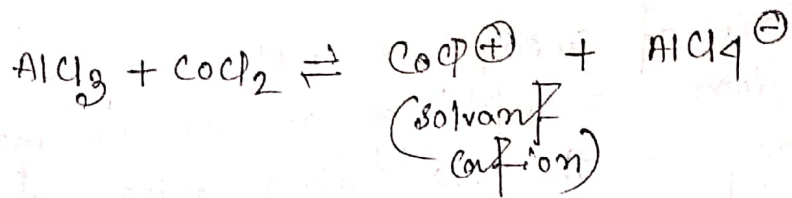 AlCl3 + COCl2 ⇌ COCl⊕ + AlCl4⊖
(solvant
cation)